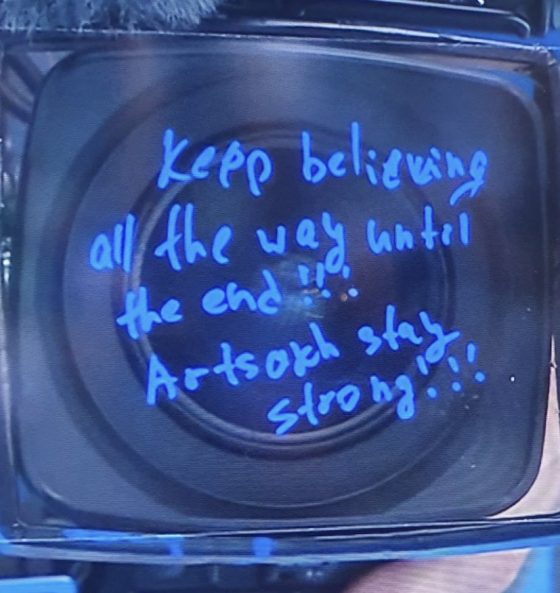 Keep believing
all the way until
the end!!!
Artsakh stay
strong!!!